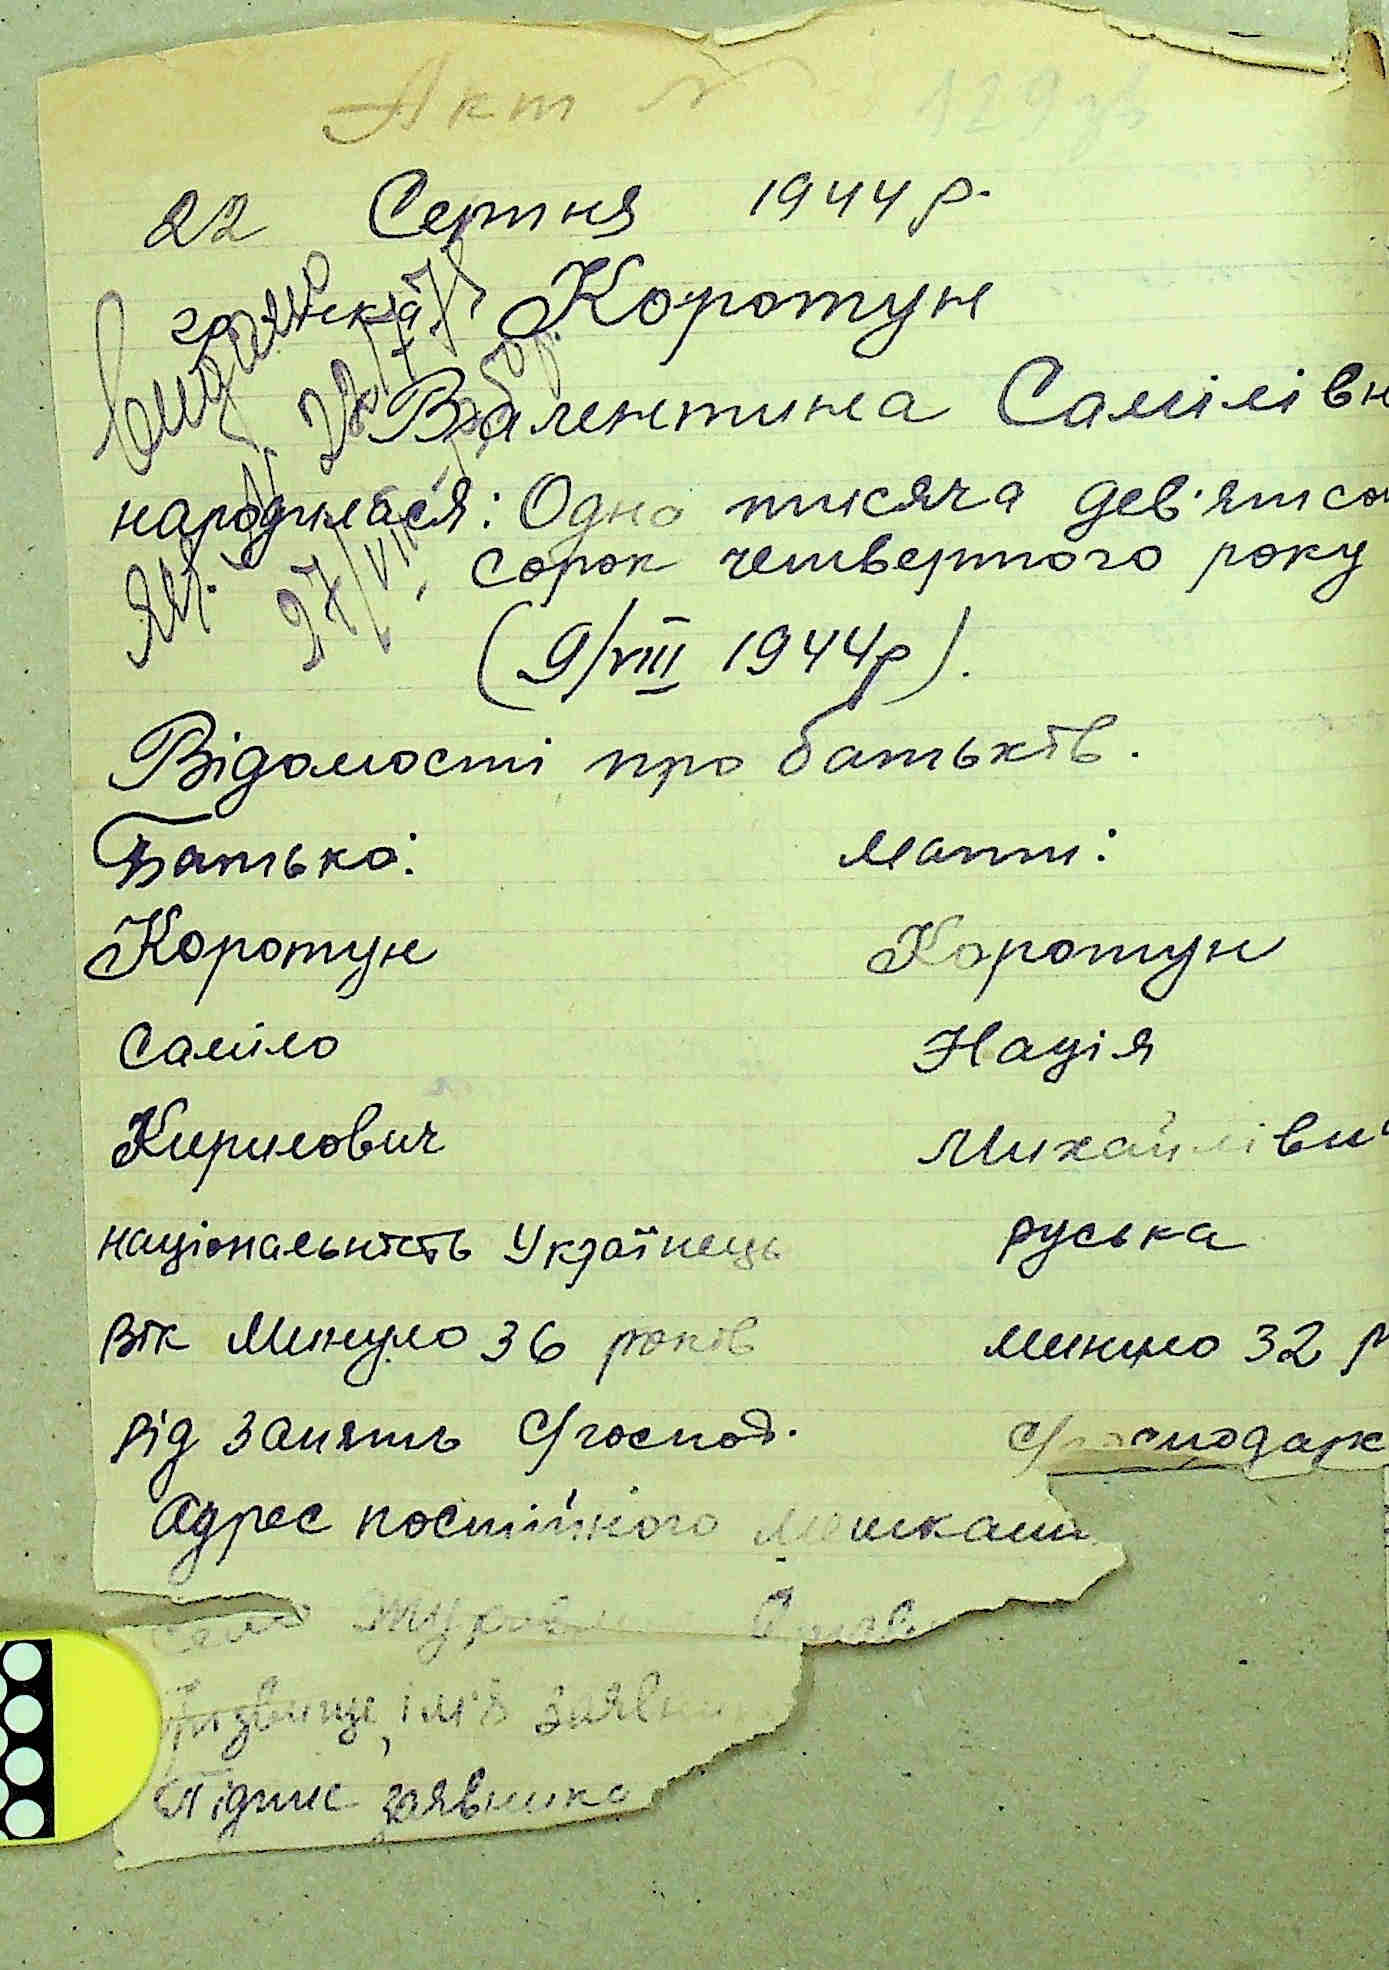 Акт №
22 Серпня 1944 р.
Коротун
Валентина Самілівн
народилася: Одна тисяча дев'ятсо
сорок четвертого року
(9/VIII 1944р).
Відомості про батьків.
Батько: мати:
Коротун Коротун
Саміло Надія
Кирилович Михайлівн
національність Українець руська
Вік Минуло 36 років минуло 32 р
рід занять С/господ. С/господарк
Адрес постійного мешкан
село
Прізвище, ім'я заявни
Підпис заявника